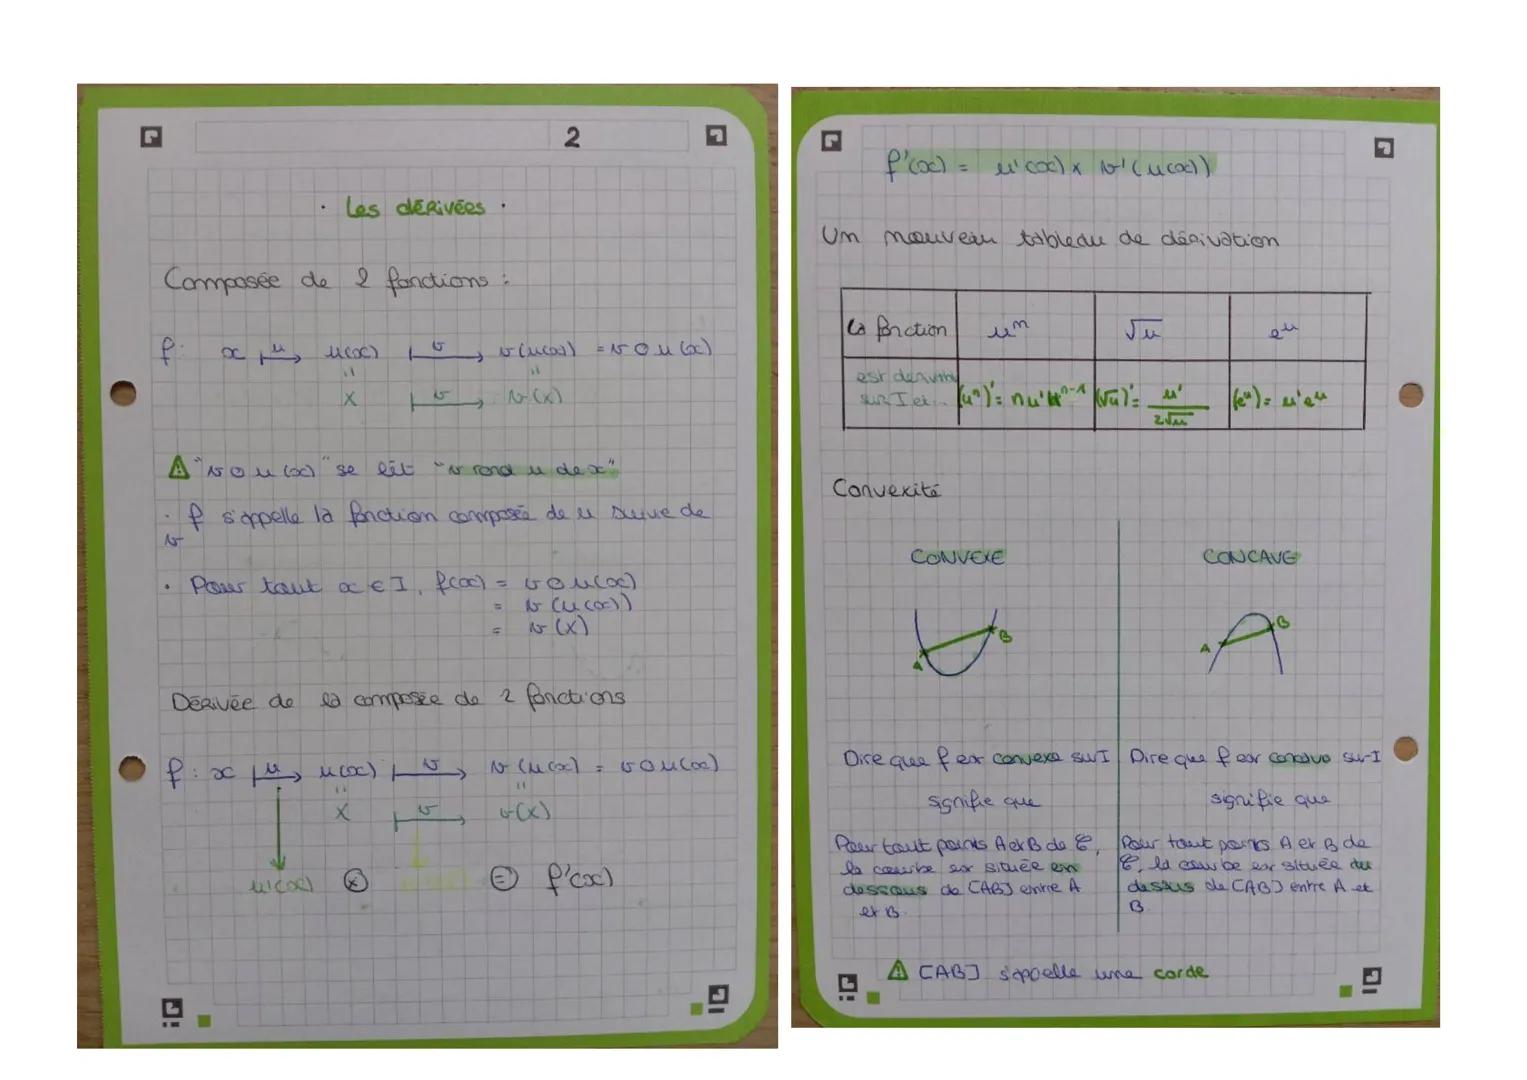 2
· Les dérivées ·
Composée de 2 fonctions :
f: x ⟼ u(x) ⟼ v(u(x)) = v o u (x)
u v
" "
X ⟼ v(X)
v
⚠ "v o u (x)" se lit "v rond u de x"
· f s'appelle la fonction composée de u suivie de
v
· Pour tout x ∈ I, f(x) = v o u(x)
= v (u(x))
= v (X)
Dérivée de la composée de 2 fonctions
f : x ⟼ u(x) ⟼ v (u(x)) = v o u(x)
u v
" "
X ⟼ v(X)
v
u'(x) ⊗ ⊜ f'(x)
f'(x) = u'(x) x v'(u(x))
Un nouveau tableau de dérivation
la fonction uⁿ √u eᵘ
est dérivable (uⁿ)' = nu'uⁿ⁻¹ (√u)' = u' / 2√u (eᵘ)= u'eᵘ
sur I et...
Convexité
CONVEXE CONCAVE
A B
A B
Dire que f est convexe sur I
signifie que
Pour tout points A et B de C,
la courbe est située en
dessous de [AB] entre A
et B.
Dire que f est concave sur I
signifie que
Pour tout points A et B de
C, la courbe est située au
dessus de [AB] entre A et
B.
⚠ [AB] s'appelle une corde